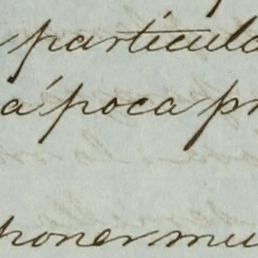 particula
á poca pr
poner mu